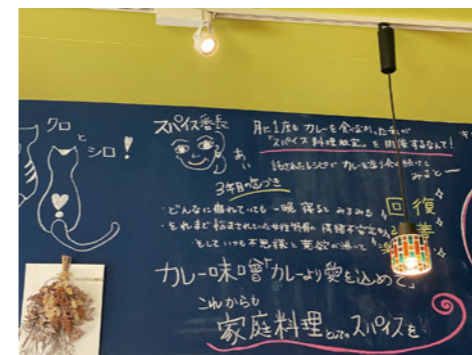 クロ
と
シロ！
スパイス番長
あい
月に1度も カレーを食べなかった私が
「スパイス料理教室」を開催するなんて！
託されたレシピで カレーを作り食べ続けて
みると―
3年目の気づき
・どんなに疲れていても 一晩 寝ると みるみる 回復
・それまで 悩まされていた女性特有の 情緒不安定が 改善
・そして いつも 不思議と 意欲が湧いて
カレー味噌「カレーより愛を込めて」
これからも
家庭料理としてのスパイスを